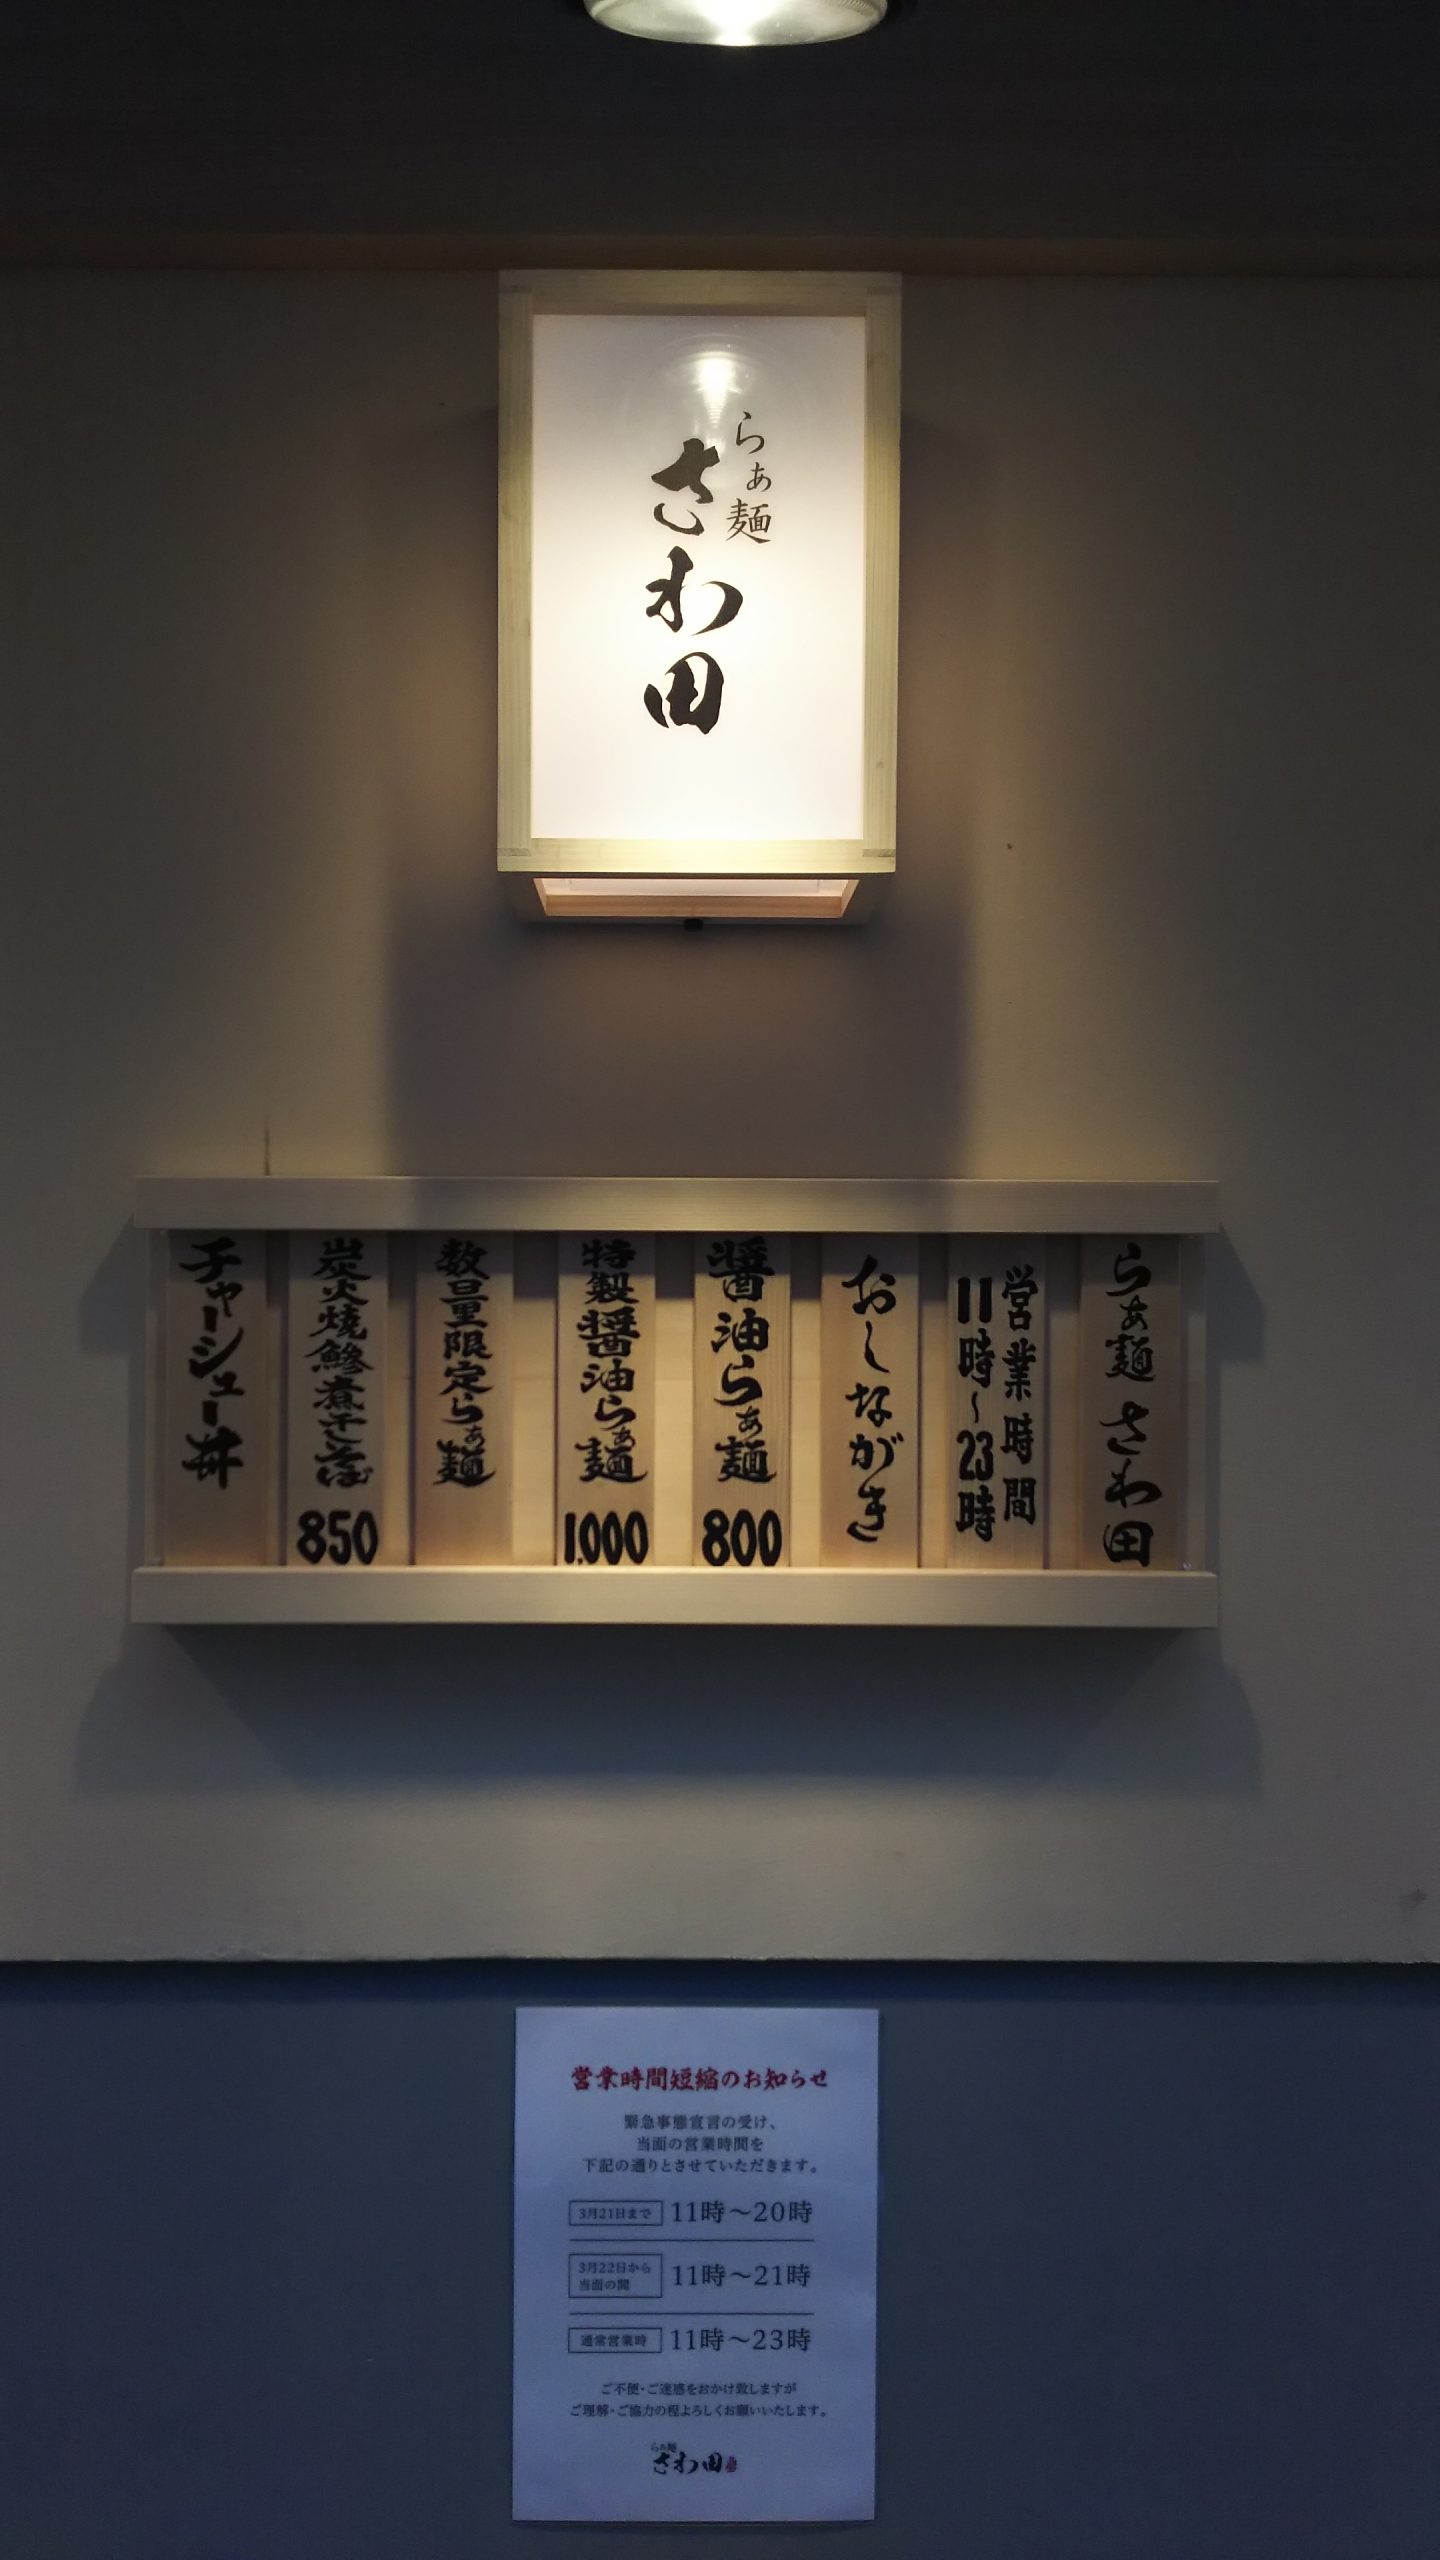 らぁ麺
さわ田
らぁ麺 さわ田
営業時間
11時〜23時
おしながき
醤油らぁ麺
800
特製醤油らぁ麺
1,000
数量限定らぁ麺
炭火焼鯵煮干しそば
850
チャーシュー丼
営業時間短縮のお知らせ
緊急事態宣言の受け、
当面の営業時間を
下記の通りとさせていただきます。
3月21日まで 11時〜20時
3月22日から
当面の間 11時〜21時
通常営業時 11時〜23時
ご不便・ご迷惑をおかけ致しますが
ご理解・ご協力の程よろしくお願いいたします。
らぁ麺
さわ田